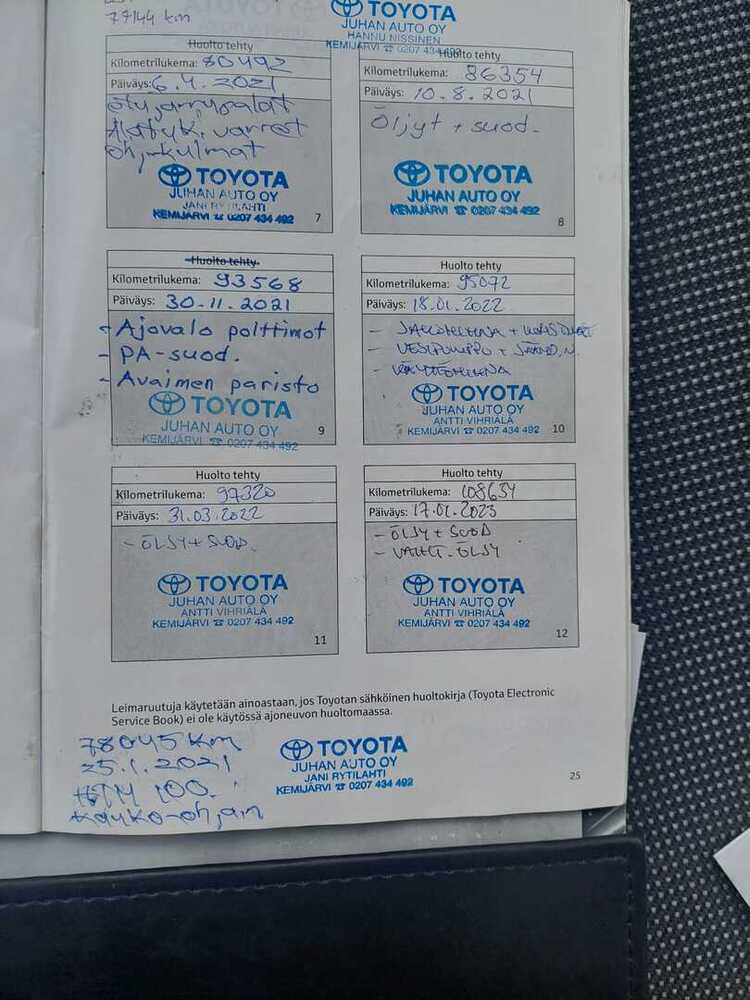 77144 km
TOYOTA
JUHAN AUTO OY
HANNU NISSINEN
KEMIJÄRVI ☎ 0207 434 492
Huolto tehty
Kilometrilukema: 80492
Päiväys: 6.4.2021
Etujarrupalat
Alatuk. varret
TOYOTA
JUHAN AUTO OY
JANI RYTILAHTI
KEMIJÄRVI ☎ 0207 434 492
7
Huolto tehty
Kilometrilukema: 86354
Päiväys: 10.8.2021
Öljyt + suod.
TOYOTA
JUHAN AUTO OY
KEMIJÄRVI ☎ 0207 434 492
8
Huolto tehty
Kilometrilukema: 93568
Päiväys: 30.11.2021
- Ajovalo polttimot
- PA-suod.
- Avaimen paristo
TOYOTA
JUHAN AUTO OY
KEMIJÄRVI ☎ 0207 434 492
9
Huolto tehty
Kilometrilukema: 95092
Päiväys: 18.01.2022
- JAKOHIHNA +
- VESIPUMPPU +
- KÄYTTÖHIHNA
TOYOTA
JUHAN AUTO OY
ANTTI VIHRIÄLÄ
KEMIJÄRVI ☎ 0207 434 492
10
Huolto tehty
Kilometrilukema: 97320
Päiväys: 31.03.2022
- ÖLJY + SUOD.
TOYOTA
JUHAN AUTO OY
ANTTI VIHRIÄLÄ
KEMIJÄRVI ☎ 0207 434 492
11
Huolto tehty
Kilometrilukema: 108634
Päiväys: 17.01.2023
- ÖLJY + SUOD
- VAIHT. ÖLJY
TOYOTA
JUHAN AUTO OY
ANTTI VIHRIÄLÄ
KEMIJÄRVI ☎ 0207 434 492
12
Leimaruutuja käytetään ainoastaan, jos Toyotan sähköinen huoltokirja (Toyota Electronic
Service Book) ei ole käytössä ajoneuvon huoltomaassa.
78045 km
25.1.2021
HTM 100.
Kauko-ohjain
TOYOTA
JUHAN AUTO OY
JANI RYTILAHTI
KEMIJÄRVI ☎ 0207 434 492
25